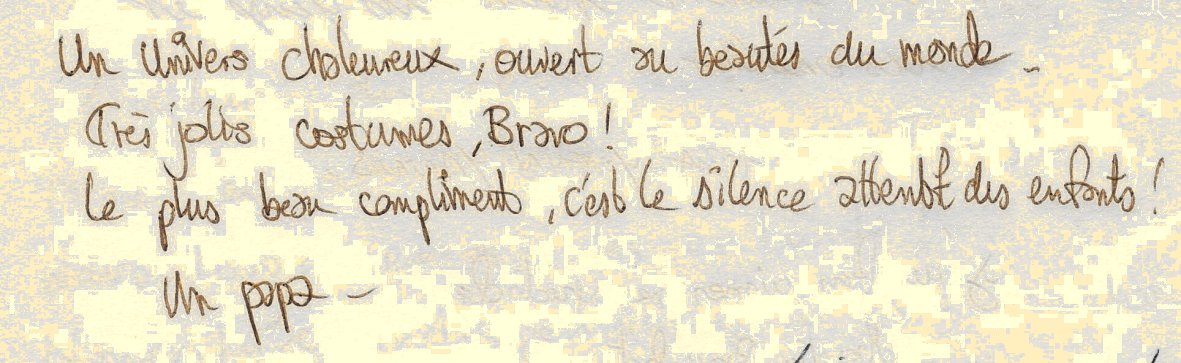 Un univers chaleureux, ouvert au beautés du monde.
Très jolis costumes, Bravo!
Le plus beau compliment, c'est le silence attentif des enfants!
Un papa -